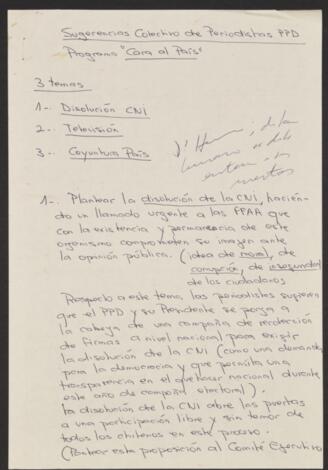 Sugerencias Colectivo de Periodistas PPD
Programa "Cara al País"
3 temas
1-. Disolución CNI
2-. Televisión
3-. Coyuntura País
1-. Plantear la disolución de la CNI, hacién-
do un llamado urgente a las FFAA que
con la existencia y permanencia de este
organismo comprometen su imagen ante
la opinión pública. (idea de moral, de
corrupción, de inseguridad
de los ciudadanos
Respecto a este tema, los periodistas sugieren
que el PPD y su Presidente se ponga a
la cabeza de una campaña de recolección
de firmas a nivel nacional para exigir
la disolución de la CNI (como una demanda
para la democracia y que permita una
transparencia en el quehacer nacional durante
este año de campaña electoral).
La disolución de la CNI abre las puertas
a una participación libre y sin temor de
todos los chilenos en este proceso.
(Plantear esta proposición al Comité Ejecutivo